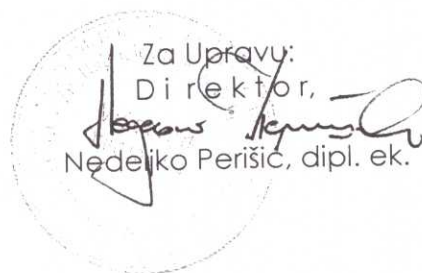 Za Upravu:
D i r e k t o r,
Nedeljko Perišić, dipl. ek.